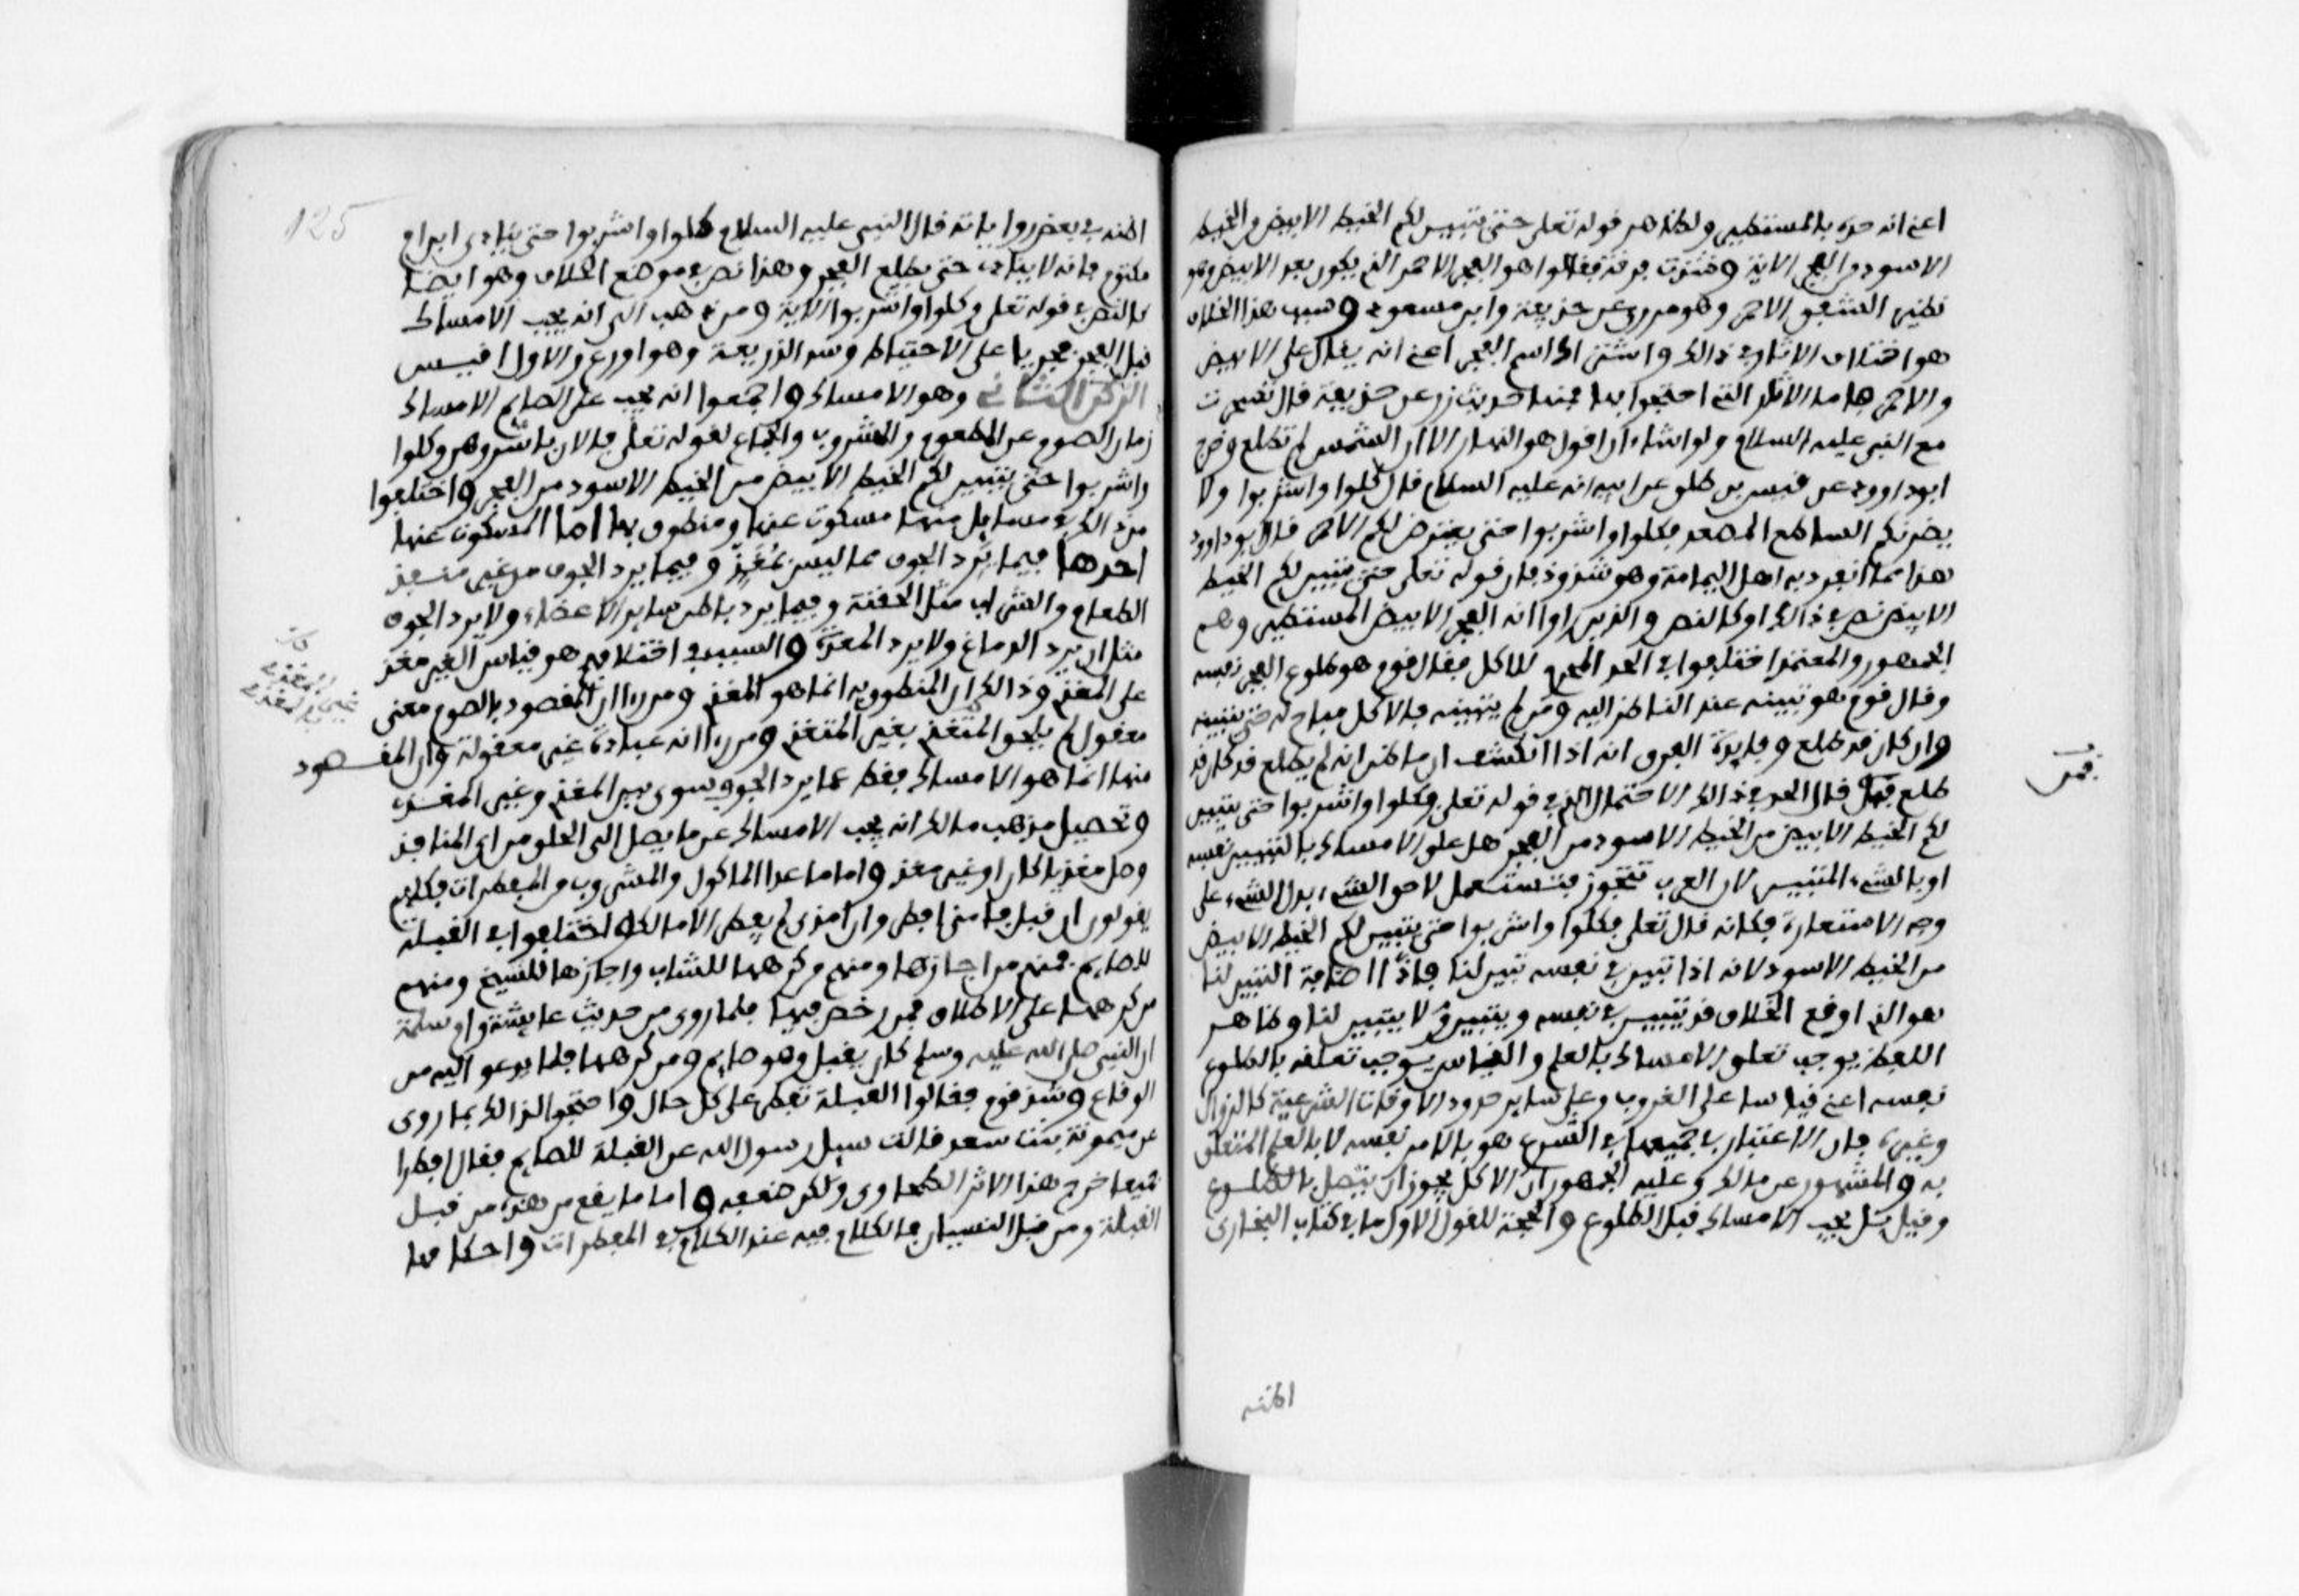 اعني انه حده بالمستطير ولظاهر قوله تعلى حتى يتبين لكم الخيط الابيض من الخيط
الاسود من الفجر الاية وشذت فرقة فقالوا هو الفجر الاحمر الذي يكون بعد الابيض وهو
نظير الشفق الاحمر وهو مروي عن حذيفة وابن مسعود وسبب هذا الخلاف
هو اختلاف الاثار في ذالك واشتراك اسم الفجر اعني انه يقال على الابيض
والاحمر فاما الاثار التي احتجوا بها فمنها حديث زر عن حذيفة قال تسحرت
مع النبي عليه السلام ولو اشاء ان اقول هو النهار الا ان الشمس لم تطلع وخرج
ابو داوود عن قيس بن طلق عن ابيه انه عليه السلام قال كلوا واشربوا ولا
يضرنكم الساطع المصعد فكلوا واشربوا حتى يعترض لكم الاحمر قال ابو داوود
هذا مما انفرد به اهل اليمامة وهو شذوذ فان قوله تعلى حتى يتبين لكم الخيط
الابيض نص في ذالك او كالنص والذين راوا انه الفجر الابيض المستطير وهم
الجمهور والمعتمد اختلفوا في الحد المحرم للاكل فقال قوم هو طلوع الفجر نفسه
وقال قوم هو تبينه عند الناظر اليه ومن لم يتبينه فالاكل مباح له حتى يتبينه
وان كان قد طلع وفايدة الفرق انه اذا انكشف ان ما ظن انه لم يطلع قد كان قد
طلع فمن قال الحد في ذالك الاحتمال الذي في قوله تعلى وكلوا واشربوا حتى يتبين
لكم الخيط الابيض من الخيط الاسود من الفجر هل علق الامساك بالتبيين نفسه
او بالشيء المتبين لان العرب تتجوز فتستعمل لاحق الشيء بدل الشيء على
وجه الاستعارة فكانه قال تعلى فكلوا واشربوا حتى يتبين لكم الخيط الابيض
من الخيط الاسود لانه اذا تبين في نفسه تبين لنا فاذا اضافة التبيين لنا
هو الذي اوقع الخلاف قد يتبين في نفسه ويتبين ولا يتبين لنا وظاهر
اللفظ يوجب تعلق الامساك بالعلم والقياس يوجب تعلقه بالطلوع
نفسه اعني قياسا على الغروب وعلى ساير حدود الاوقات الشرعية كالزوال
وغيره فان الاعتبار في جميعها في الشرع هو بالامر نفسه لا بالعلم المتعلق
به والمشهور عن مالك وعليه الجمهور ان الاكل يجوز ان يتصل بالطلوع
وقيل بل يجب الامساك قبل الطلوع والحجة للقول الاول ما في كتاب البخاري
اظنه
فمن
125
اظنه في بعض رواياته قال النبي عليه السلام كلوا واشربوا حتى ينادي ابن ام
مكتوم فانه لا ينادي حتى يطلع الفجر وهذا نص في موضع الخلاف وهو ايضا
كالنص في قوله تعلى وكلوا واشربوا الاية ومن ذهب الى انه يجب الامساك
قبل الفجر فجريا على الاحتياط وسد الذريعة وهو اورع والاول اقيس
الركن الثاني وهو الامساك واجمعوا انه يجب على الصايم الامساك
زمان الصوم عن المطعوم والمشروب والجماع لقوله تعلى فالان باشروهن وكلوا
واشربوا حتى يتبين لكم الخيط الابيض من الخيط الاسود من الفجر واختلفوا
من ذالك في مسايل منها مسكوت عنها ومنطوق بها اما المسكوت عنها
احدها فيما يرد الجوف مما ليس بمغذ وفيما يرد الجوف من غير منفذ
الطعام والشراب مثل الحقنة وفيما يرد باطن ساير الاعضاء ولا يرد الجوف
مثل ان يرد الدماغ ولا يرد المعدة والسبب في اختلافهم هو قياس الغير مغذ
على المغذي وذالك ان المنطوق به انما هو المغذي فمن راا ان المقصود بالصوم معنى
معقول لم يلحق المتغذي بغير المتغذي ومن راا انه عبادة غير معقولة وان المقصود
منها انما هو الامساك فقط عما يرد الجوف سوى بين المغذي وغير المغذي
وتحصيل مذهب مالك انه يجب الامساك عن ما يصل الى الحلق من اي المنافذ
وصل مغذيا كان او غير مغذ واما ما عدا الماكول والمشروب من المفطرات فكلهم
يقولون ان قبل فامنى افطر وان امذى لم يفطر الا مالك واختلفوا في القبلة
للصايم فمنهم من اجازها ومنهم من كرهها للشاب واجازها للشيخ ومنهم
من كرهها على الاطلاق فمن رخص فيها فلما روي من حديث عايشة وام سلمة
ان النبي صلى الله عليه وسلم كان يقبل وهو صايم ومن كرهها فلما يدعو اليه من
الوقاع وشذ قوم فقالوا القبلة تفطر على كل حال واحتجوا لذالك بما روي
عن ميمونة بنت سعد قالت سيل رسول الله عن القبلة للصايم فقال افطرا
جميعا خرج هذا الاثر الطحاوي ولكن ضعفه واما ما يقع من هذه من قبل
الغلبة ومن قبل النسيان فالكلام فيه عند الكلام في المفطرات واحكامها